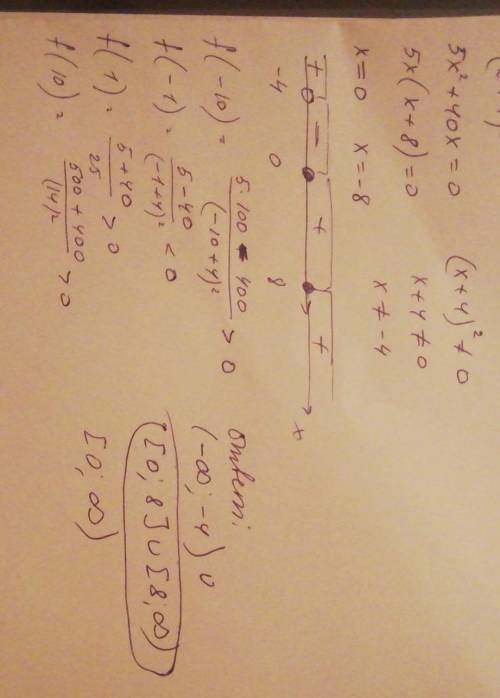 5x² + 40x = 0   (x + 4)² ≠ 0
5x(x + 8) = 0   x + 4 ≠ 0
x = 0   x = -8   x ≠ -4
+ - + +
-4   0   8   x
f(-10) = (5·100 - 400)/(-10+4)² > 0
f(-1) = (5 - 40)/(-1+4)² < 0
f(1) = (5 + 40)/25 > 0
f(10) = (500 + 400)/(14)² > 0
Ответ:
(-∞; -4) ∪
[0; 8] ∪ [8; ∞)
[0; ∞)